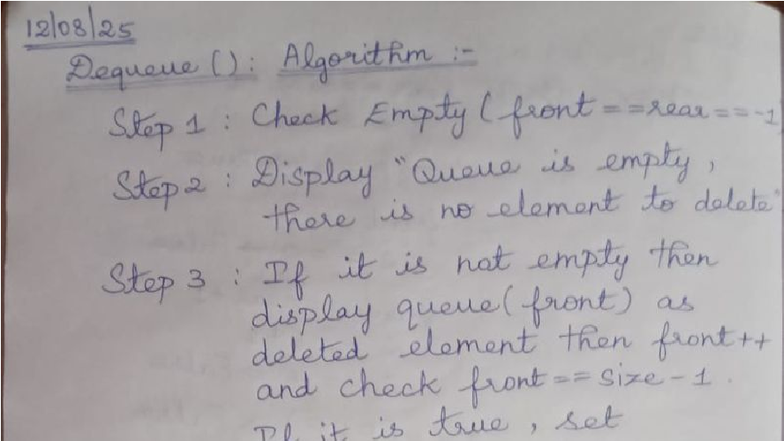 12/08/25
Dequeue(): Algorithm :-
Step 1 : Check Empty (front==rear==-1
Step 2 : Display "Queue is empty,
there is no element to delete"
Step 3 : If it is not empty then
display queue(front) as
deleted element then front++
and check front==size-1.
If it is true, set